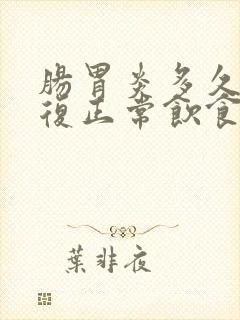 腸胃炎多久
復正常飲食
葉非夜